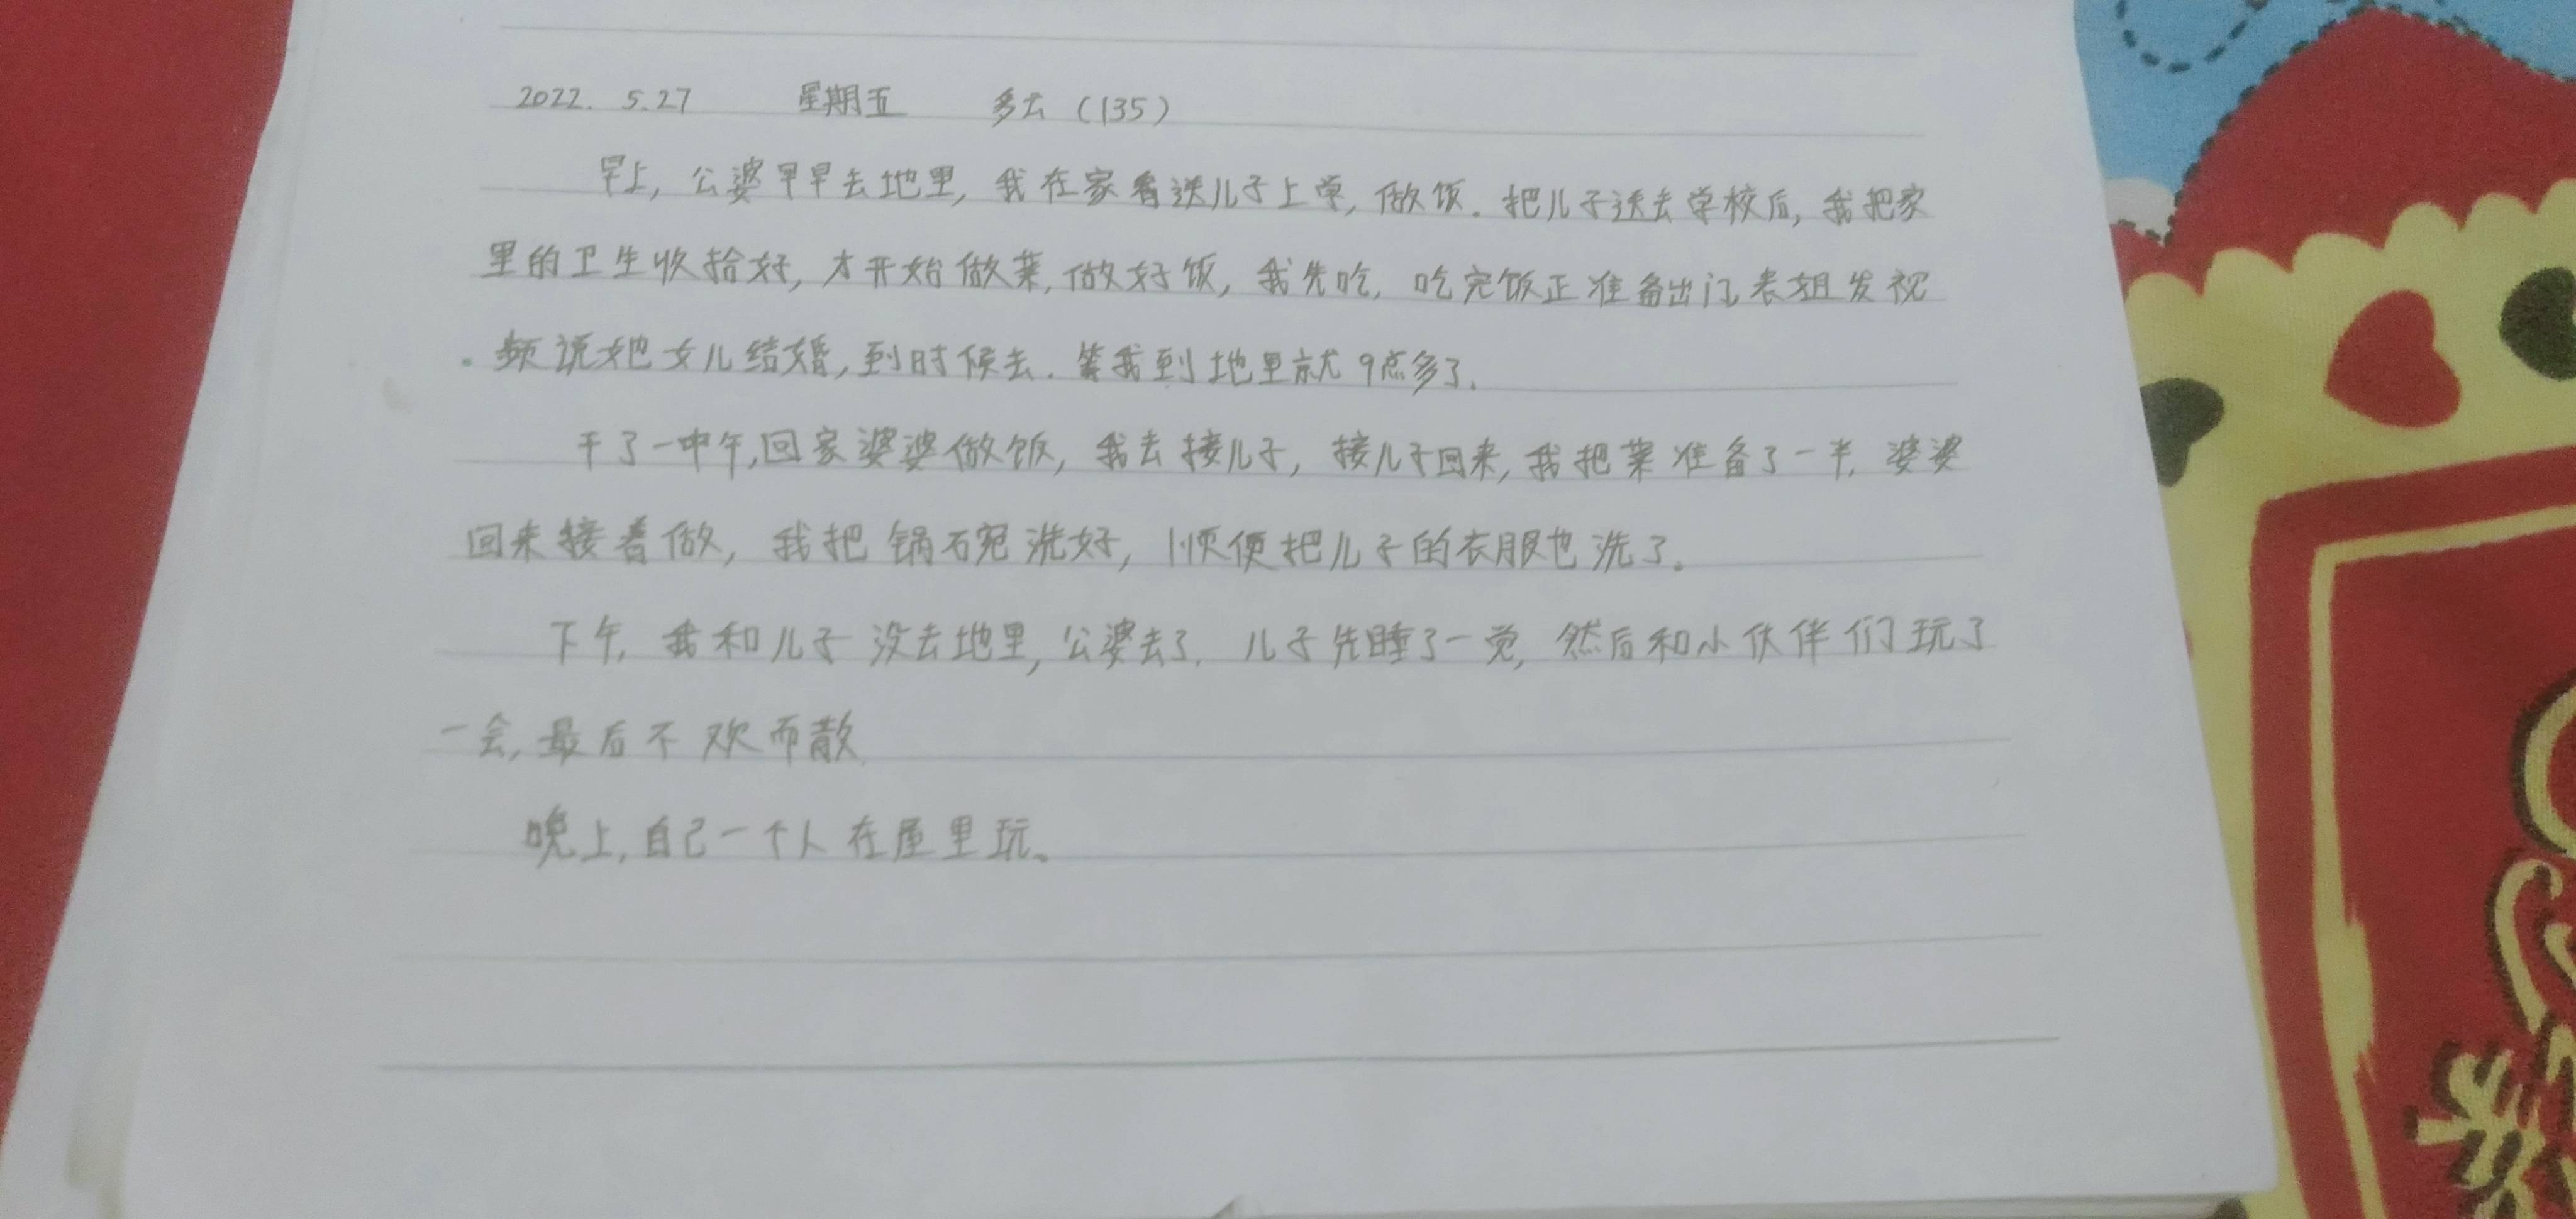 2022. 5.27 星期五 多云（135）
早上，公婆早早去地里，我在家看送儿子上学，做饭。把儿子送去学校后，我把家
里的卫生收拾好，才开始做菜，做好饭，我先吃，吃完饭正准备出门表姐发视
频说她女儿结婚，到时候去．等我到地里就9点多了．
干了一中午，回家婆婆做饭，我去接儿子，接儿子回来，我把菜准备了一半，婆婆
回来接着做，我把锅碗洗好，顺便把儿子的衣服也洗了。
下午，我和儿子没去地里，公婆去了．儿子先睡了一觉，然后和小伙伴们玩了
一会，最后不欢而散
晚上，自己一个人在屋里玩。